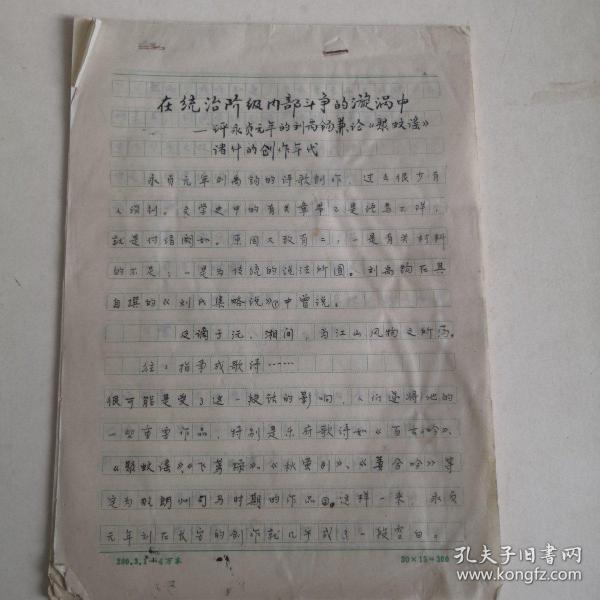 在统治阶级内部斗争的漩涡中
——评永贞元年的刘禹锡兼论《聚蚊谣》
诸什的创作年代
永贞元年刘禹锡的诗歌创作,过去很少有
人谈到。文学史中的有关章节不是语焉不详,
就是付诸阙如。原因大致有二,一是有关材料
的不足;一是为传统的说法所囿。刘禹锡在其
自撰的《刘氏集略说》①中曾说。
及谪于沅、湘间,为江山风物之所荡。
往往指事成歌诗……
很可能是受了这一段话的影响,人们遂将他的
一些重要作品,特别是乐府歌诗如《百舌吟》、
《聚蚊谣》《飞鸢操》、《秋萤引》、《
吟》等
定为贬朗州司马时期的作品②。这样一来,永贞
元年刘在长安的创作就几乎成了一段空白。
20×15=300
孔夫子旧书网
www.kongfz.com